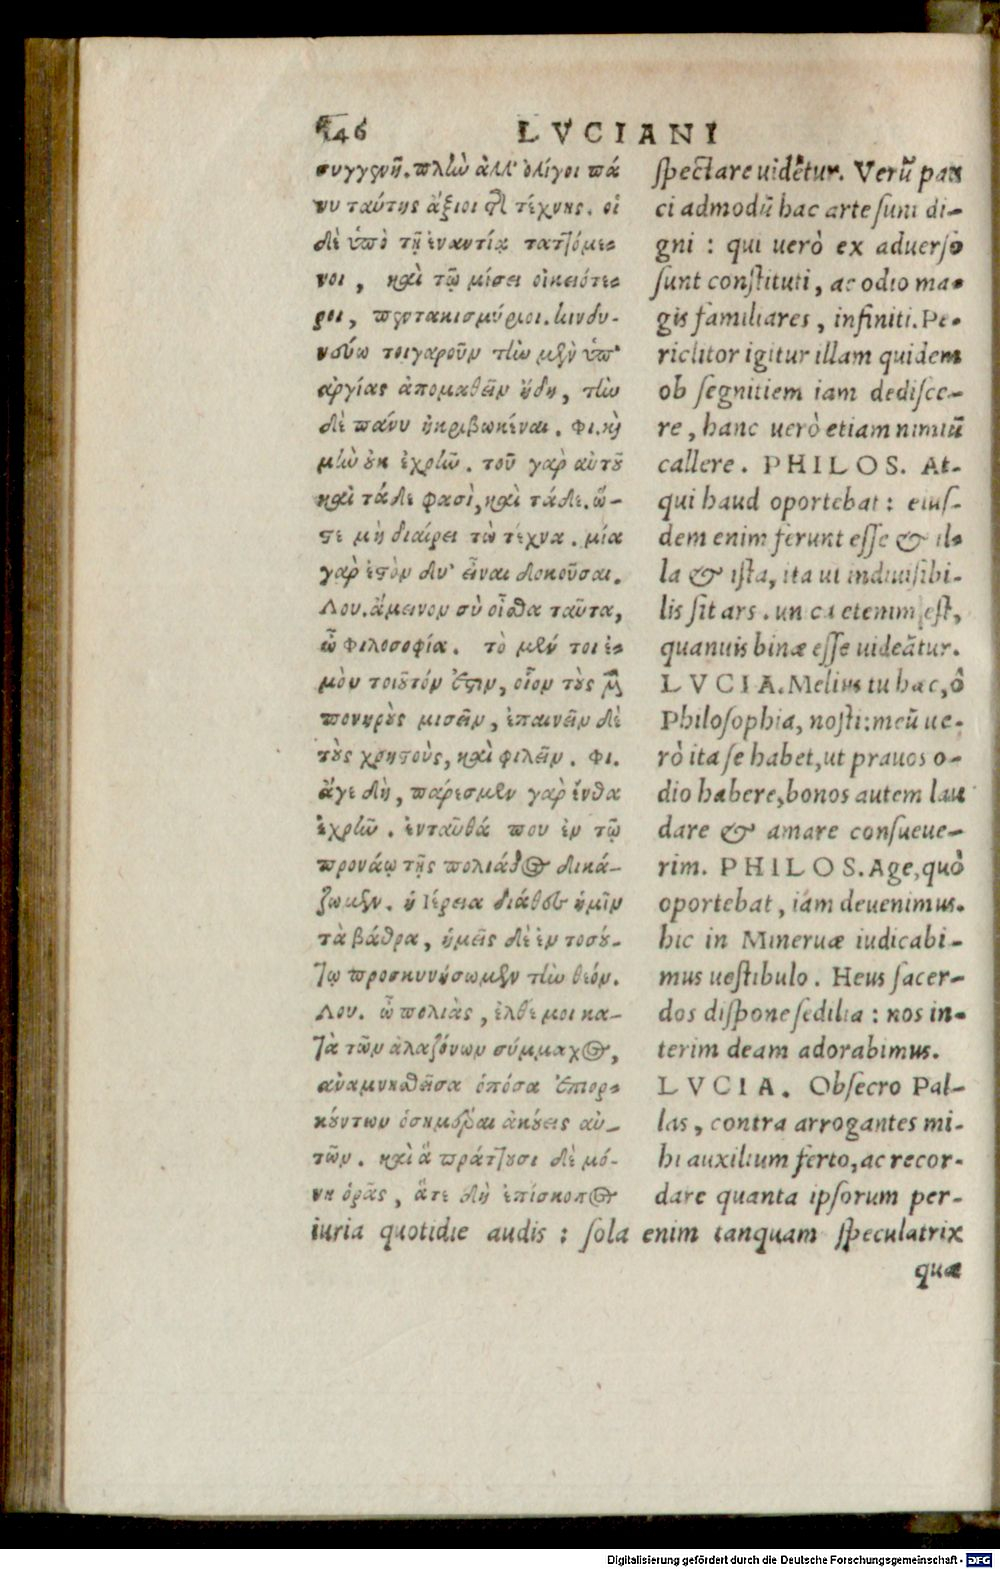 146 LVCIANI
συγγενῆ. πλὴν ἀλλ' ὀλίγοι πά
νυ ταύτης ἄξιοι τῆς τέχνης. οἱ
δὲ ὑπὸ τῇ ἐναντίᾳ ταττόμε-
νοι, καὶ τῷ μίσει οἰκειότε-
ροι, πεντακισμύριοι. κινδυ-
νεύω τοιγαροῦν τὴν μὲν ὑπ'
ἀργίας ἀπομαθεῖν ἤδη, τὴν
δὲ πάνυ ἠκριβωκέναι. Φι. καὶ
μὴν οὐκ ἐχρῆν. τοῦ γὰρ αὐτοῦ
καὶ τάδε φασὶ, καὶ τάδε. ὥ-
στε μὴ διαίρει τὼ τέχνα. μία
γὰρ ἐστὸν δύ' εἶναι δοκοῦσαι.
Λου. ἄμεινον σὺ οἶσθα ταῦτα,
ὦ Φιλοσοφία. τὸ μὲν τοι ἐ-
μὸν τοιοῦτόν ἐστιν, οἷον τοὺς μὲν
πονηροὺς μισεῖν, ἐπαινεῖν δὲ
τοὺς χρηστοὺς, καὶ φιλεῖν. Φι.
ἄγε δὴ, πάρεσμεν γὰρ ἔνθα
ἐχρῆν. ἐνταῦθά που ἐν τῷ
προνάῳ τῆς πολιάδος δικά-
ζωμεν. ἡ Ἱέρεια διάθες ἡμῖν
τὰ βάθρα, ἡμεῖς δὲ ἐν τοσού-
τῳ προσκυνήσωμεν τὴν θεόν.
Λου. ὦ πολιὰς, ἐλθέ μοι κα-
τὰ τῶν ἀλαζόνων σύμμαχος,
ἀναμνησθεῖσα ὁπόσα ἐπιορ-
κούντων ὁσημέραι ἀκούεις αὐ-
τῶν. καὶ ἃ πράττουσι δὲ μό-
νη ὁρᾷς, ἅτε δὴ ἐπίσκοπος
spectare uidetur. Verũ pau
ci admodũ hac arte sunt di-
gni : qui uerò ex aduerso
sunt constituti, ac odio ma-
gis familiares, infiniti. Pe-
riclitor igitur illam quidem
ob segnitiem iam dedisce-
re, hanc uerò etiam nimiũ
callere. PHILOS. At-
qui haud oportebat : eius-
dem enim ferunt esse & il-
la & ista, ita ut indiuisibi-
lis sit ars. un ca etenim est,
quanuis binæ esse uideãtur.
LVCIA. Melius tu hæc, ô
Philosophia, nosti: meũ ue-
rò ita se habet, ut prauos o-
dio habere, bonos autem lau
dare & amare consueue-
rim. PHILOS. Age, quò
oportebat, iàm deuenimus.
hic in Mineruæ iudicabi-
mus uestibulo. Heus sacer-
dos dispone sedilia : nos in-
terim deam adorabimus.
LVCIA. Obsecro Pal-
las, contra arrogantes mi-
hi auxilium ferto, ac recor-
dare quanta ipsorum per-
iuria quotidie audis : sola enim tanquam speculatrix
quæ
Digitalisierung gefördert durch die Deutsche Forschungsgemeinschaft - DFG